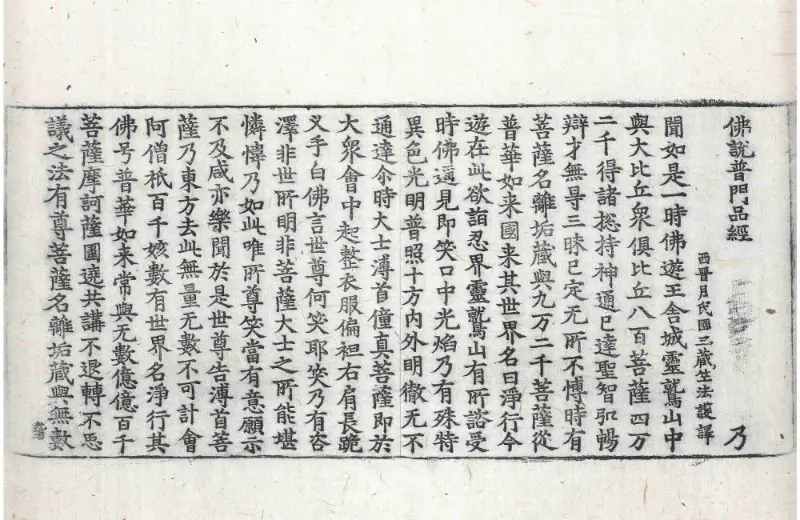 佛說普門品經 乃
西晉月氏國三藏竺法護譯
聞如是一時佛遊王舍城靈鷲山中
與大比丘眾俱比丘八百菩薩四万
二千得諸揔持神通已達聖智弘暢
辯才無㝵三昧已定无所不博時有
菩薩名離垢藏與九万二千菩薩從
普華如来國来其世界名曰淨行今
遊在此欲詣忍界靈鷲山有所諮受
時佛遥見即笑口中光焰乃有殊特
異色光明普照十方內外明徹无不
通達尒時大士溥首僮真菩薩即於
大眾會中起整衣服偏袒右肩長跪
叉手白佛言世尊何笑耶笑乃有咨
澤非世所明非菩薩大士之所能堪
憐憓乃如此唯所尊笑當有意願示
不及咸亦樂聞於是世尊告溥首菩
薩乃東方去此無量无數不可計會
阿僧祇百千姟數有世界名淨行其
佛号普華如来常與无數億億百千
菩薩摩訶薩圍遶共講不退轉不思
議之法有尊菩薩名離垢藏與無數